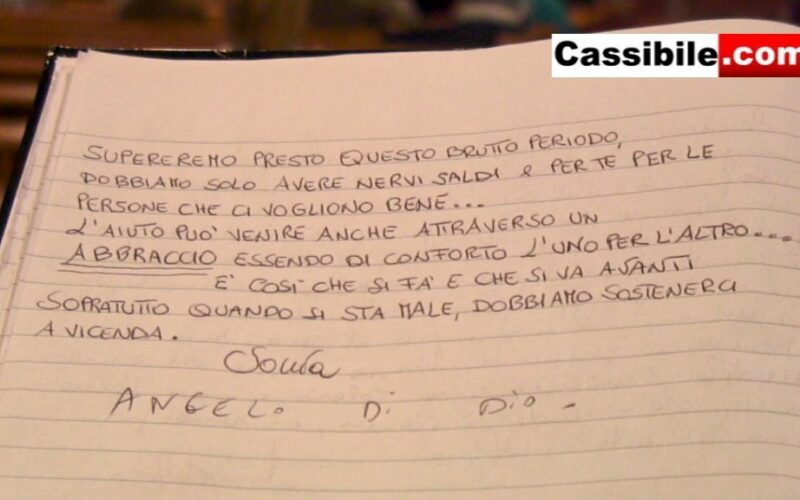 Cassibile.com
SUPEREREMO PRESTO QUESTO BRUTTO PERIODO,
DOBBIAMO SOLO AVERE NERVI SALDI & PER TE PER LE
PERSONE CHE CI VOGLIONO BENE...
L'AIUTO PUO' VENIRE ANCHE ATTRAVERSO UN
ABBRACCIO ESSENDO DI CONFORTO L'UNO PER L'ALTRO....
E' COSI' CHE SI FÀ E CHE SI VA AVANTI
SOPRATUTTO QUANDO SI STA MALE, DOBBIAMO SOSTENERCI
A VICENDA.
Sonia
ANGELO Di Dio -